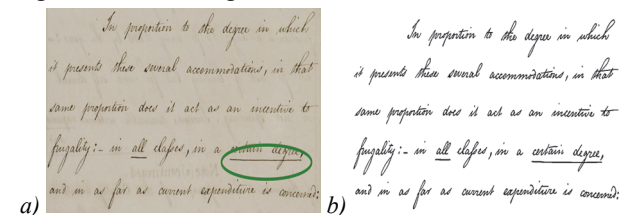 In proportion to the degree in which
it presents these several accommodations, in that
same proportion does it act as an incentive to
frugality:- in all claſses, in a certain degree,
and in as far as current expenditure is concerned:
a)
In proportion to the degree in which
it presents these several accommodations, in that
same proportion does it act as an incentive to
frugality:- in all claſses, in a certain degree,
and in as far as current expenditure is concerned:
b)